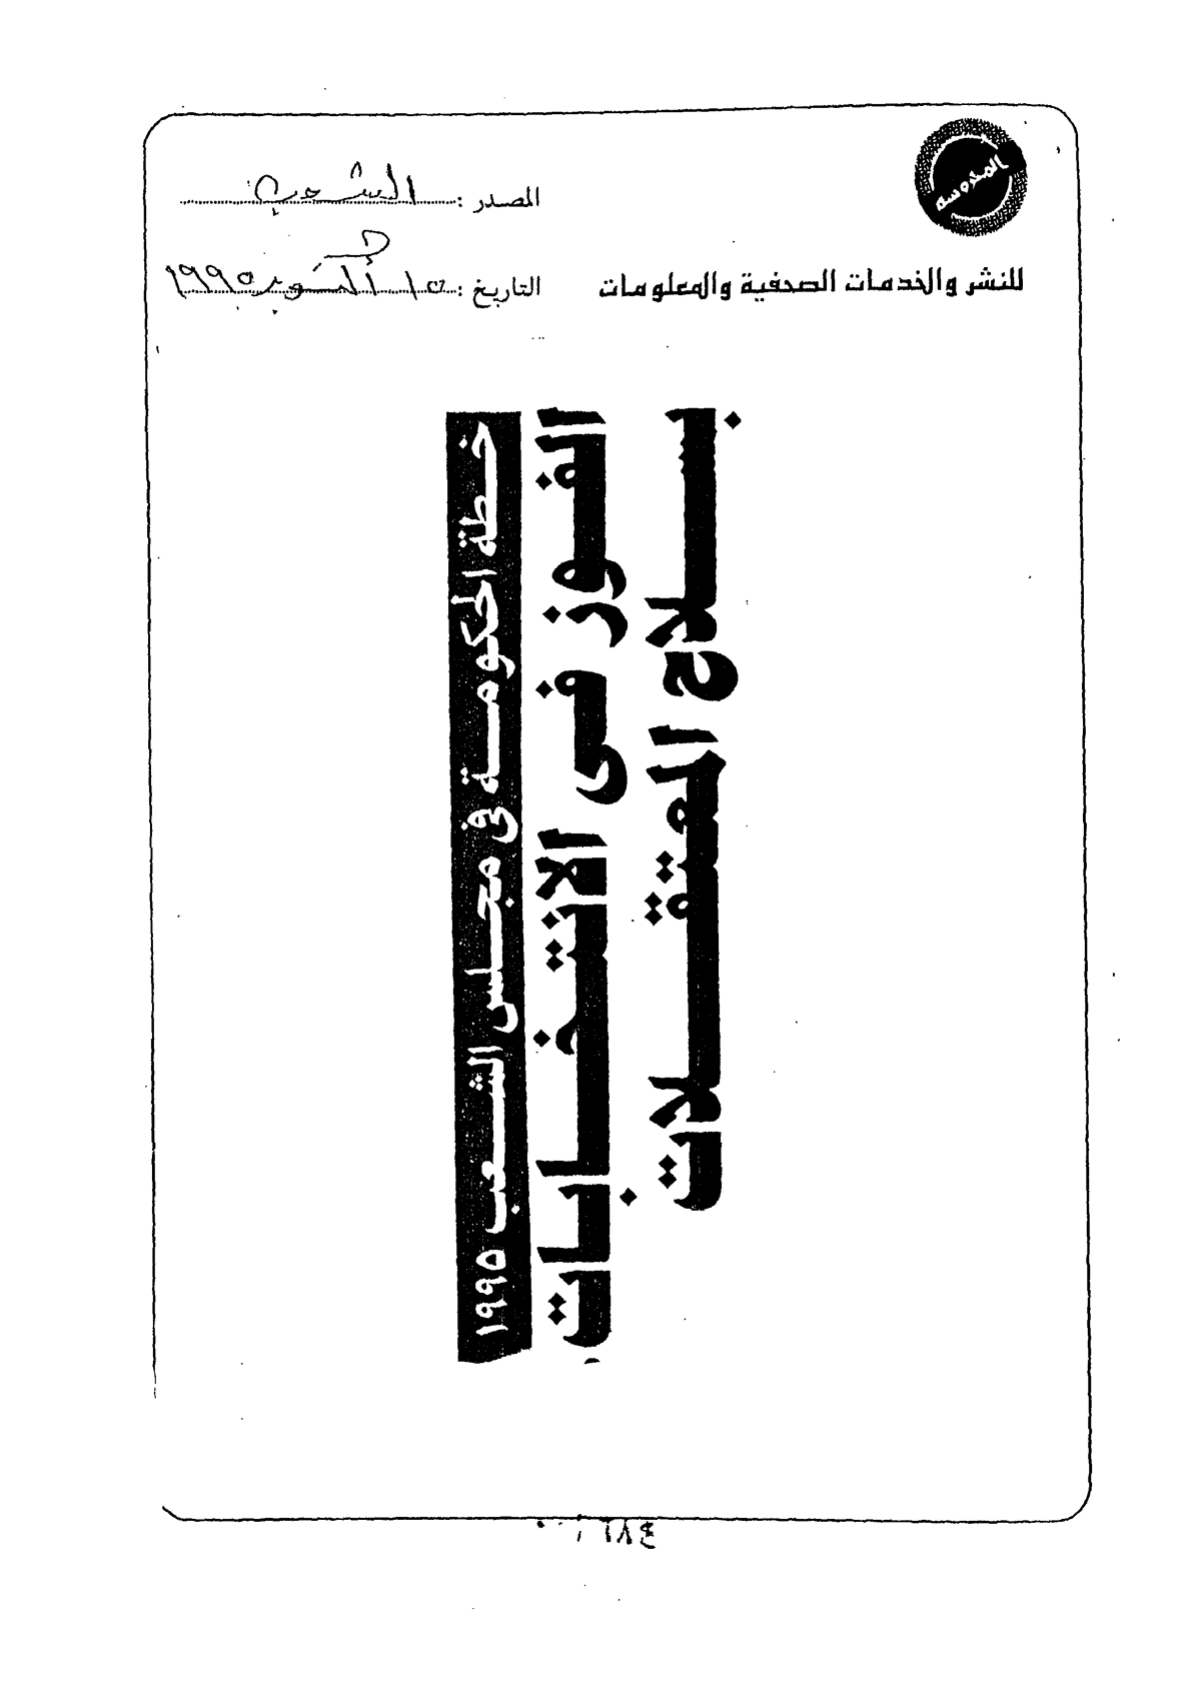 المحروسة
المصدر : الشعب
للنشر والخدمات الصحفية والمعلومات
التاريخ : ١٥ أكتوبر ١٩٩٥
خطة الحكومة فى مجلس الشعب ١٩٩٥
الفوز فى الانتخابات
بسلاح المعتقلات